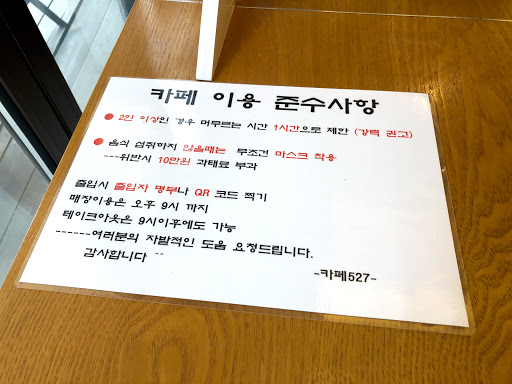 카페 이용 준수사항
● 2인 이상인 경우 머무르는 시간 1시간으로 제한 (강력 권고)
● 음식 섭취하지 않을때는 무조건 마스크 착용
---위반시 10만원 과태료 부과
출입시 출입자 명부나 QR 코드 찍기
매장이용은 오후 9시 까지
테이크아웃은 9시이후에도 가능
------여러분의 자발적인 도움 요청드립니다.
감사합니다 ^^
-카페527-